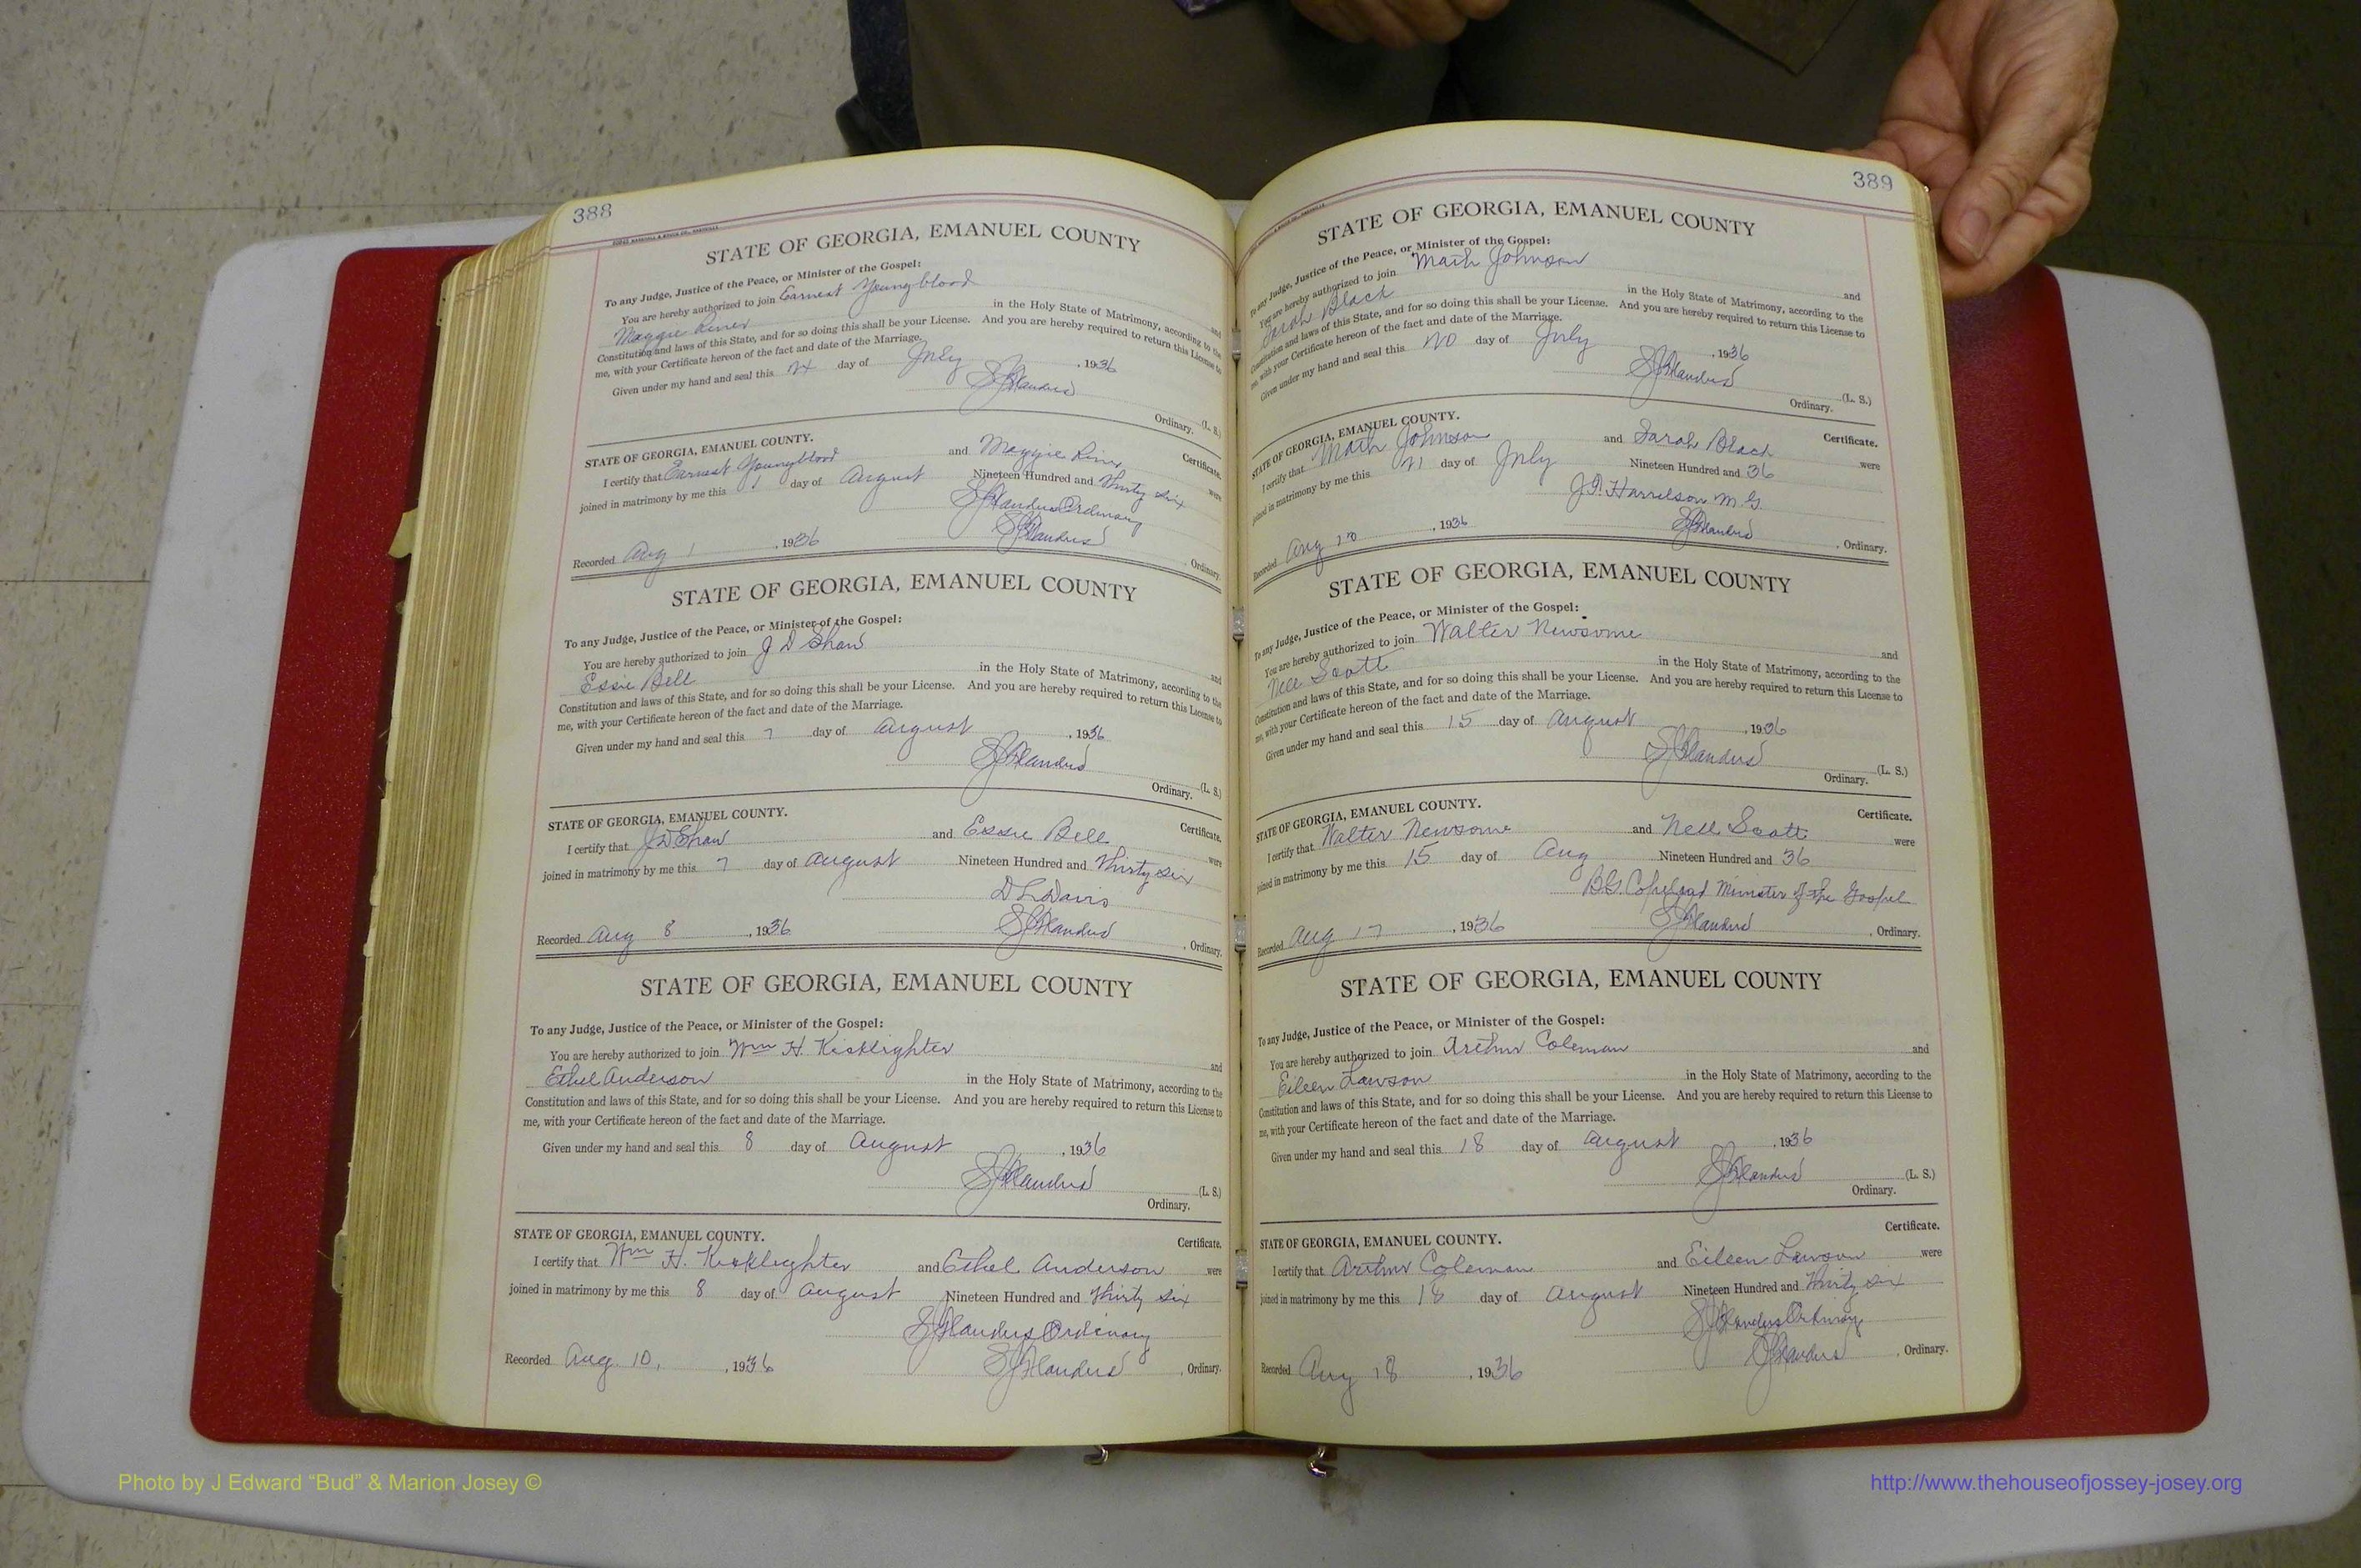 388
STATE OF GEORGIA, EMANUEL COUNTY
To any Judge, Justice of the Peace, or Minister of the Gospel:
You are hereby authorized to join Earnest Youngblood and
Maggie Riner in the Holy State of Matrimony, according to the
Constitution and laws of this State, and for so doing this shall be your License. And you are hereby required to return this License to
me, with your Certificate hereon of the fact and date of the Marriage.
Given under my hand and seal this day of July , 1936
(L. S.)
Ordinary.
STATE OF GEORGIA, EMANUEL COUNTY. Certificate.
I certify that Earnest Youngblood and Maggie Riner were
joined in matrimony by me this 1 day of August Nineteen Hundred and Thirty six
Ordinary
Recorded Aug 1 , 1936 Ordinary.
STATE OF GEORGIA, EMANUEL COUNTY
To any Judge, Justice of the Peace, or Minister of the Gospel:
You are hereby authorized to join J D Shaw and
Essie Bell in the Holy State of Matrimony, according to the
Constitution and laws of this State, and for so doing this shall be your License. And you are hereby required to return this License to
me, with your Certificate hereon of the fact and date of the Marriage.
Given under my hand and seal this 7 day of August , 1936
(L. S.)
Ordinary.
STATE OF GEORGIA, EMANUEL COUNTY. Certificate.
I certify that J D Shaw and Essie Bell were
joined in matrimony by me this 7 day of August Nineteen Hundred and Thirty six
D L Davis
Recorded Aug 8 , 1936 , Ordinary.
STATE OF GEORGIA, EMANUEL COUNTY
To any Judge, Justice of the Peace, or Minister of the Gospel:
You are hereby authorized to join Wm H. Kicklighter and
Ethel Anderson in the Holy State of Matrimony, according to the
Constitution and laws of this State, and for so doing this shall be your License. And you are hereby required to return this License to
me, with your Certificate hereon of the fact and date of the Marriage.
Given under my hand and seal this 8 day of August , 1936
(L. S.)
Ordinary.
STATE OF GEORGIA, EMANUEL COUNTY. Certificate.
I certify that Wm H. Kicklighter and Ethel Anderson were
joined in matrimony by me this 8 day of August Nineteen Hundred and Thirty six
Ordinary
Recorded Aug. 10, , 1936 , Ordinary.
389
STATE OF GEORGIA, EMANUEL COUNTY
To any Judge, Justice of the Peace, or Minister of the Gospel:
You are hereby authorized to join Math Johnson and
Sarah Black in the Holy State of Matrimony, according to the
Constitution and laws of this State, and for so doing this shall be your License. And you are hereby required to return this License to
me, with your Certificate hereon of the fact and date of the Marriage.
Given under my hand and seal this 20 day of July , 1936
(L. S.)
Ordinary.
STATE OF GEORGIA, EMANUEL COUNTY. Certificate.
I certify that Math Johnson and Sarah Black were
joined in matrimony by me this 21 day of July Nineteen Hundred and 36
J. P. Harrelson M. G.
Recorded Aug , 1936 , Ordinary.
STATE OF GEORGIA, EMANUEL COUNTY
To any Judge, Justice of the Peace, or Minister of the Gospel:
You are hereby authorized to join Walter Newsome and
Nell Scott in the Holy State of Matrimony, according to the
Constitution and laws of this State, and for so doing this shall be your License. And you are hereby required to return this License to
me, with your Certificate hereon of the fact and date of the Marriage.
Given under my hand and seal this 15 day of August , 1936
(L. S.)
Ordinary.
STATE OF GEORGIA, EMANUEL COUNTY. Certificate.
I certify that Walter Newsome and Nell Scott were
joined in matrimony by me this 15 day of Aug Nineteen Hundred and 36
B.G. Copeland Minister of the Gospel
Recorded Aug 17 , 1936 , Ordinary.
STATE OF GEORGIA, EMANUEL COUNTY
To any Judge, Justice of the Peace, or Minister of the Gospel:
You are hereby authorized to join Arthur Coleman and
Eileen Lawson in the Holy State of Matrimony, according to the
Constitution and laws of this State, and for so doing this shall be your License. And you are hereby required to return this License to
me, with your Certificate hereon of the fact and date of the Marriage.
Given under my hand and seal this 18 day of August , 1936
(L. S.)
Ordinary.
STATE OF GEORGIA, EMANUEL COUNTY. Certificate.
I certify that Arthur Coleman and Eileen Lawson were
joined in matrimony by me this 18 day of August Nineteen Hundred and Thirty six
Ordinary
Recorded Aug 18 , 1936 , Ordinary.
Photo by J Edward “Bud” & Marion Josey ©
http://www.thehouseofjossey-josey.org